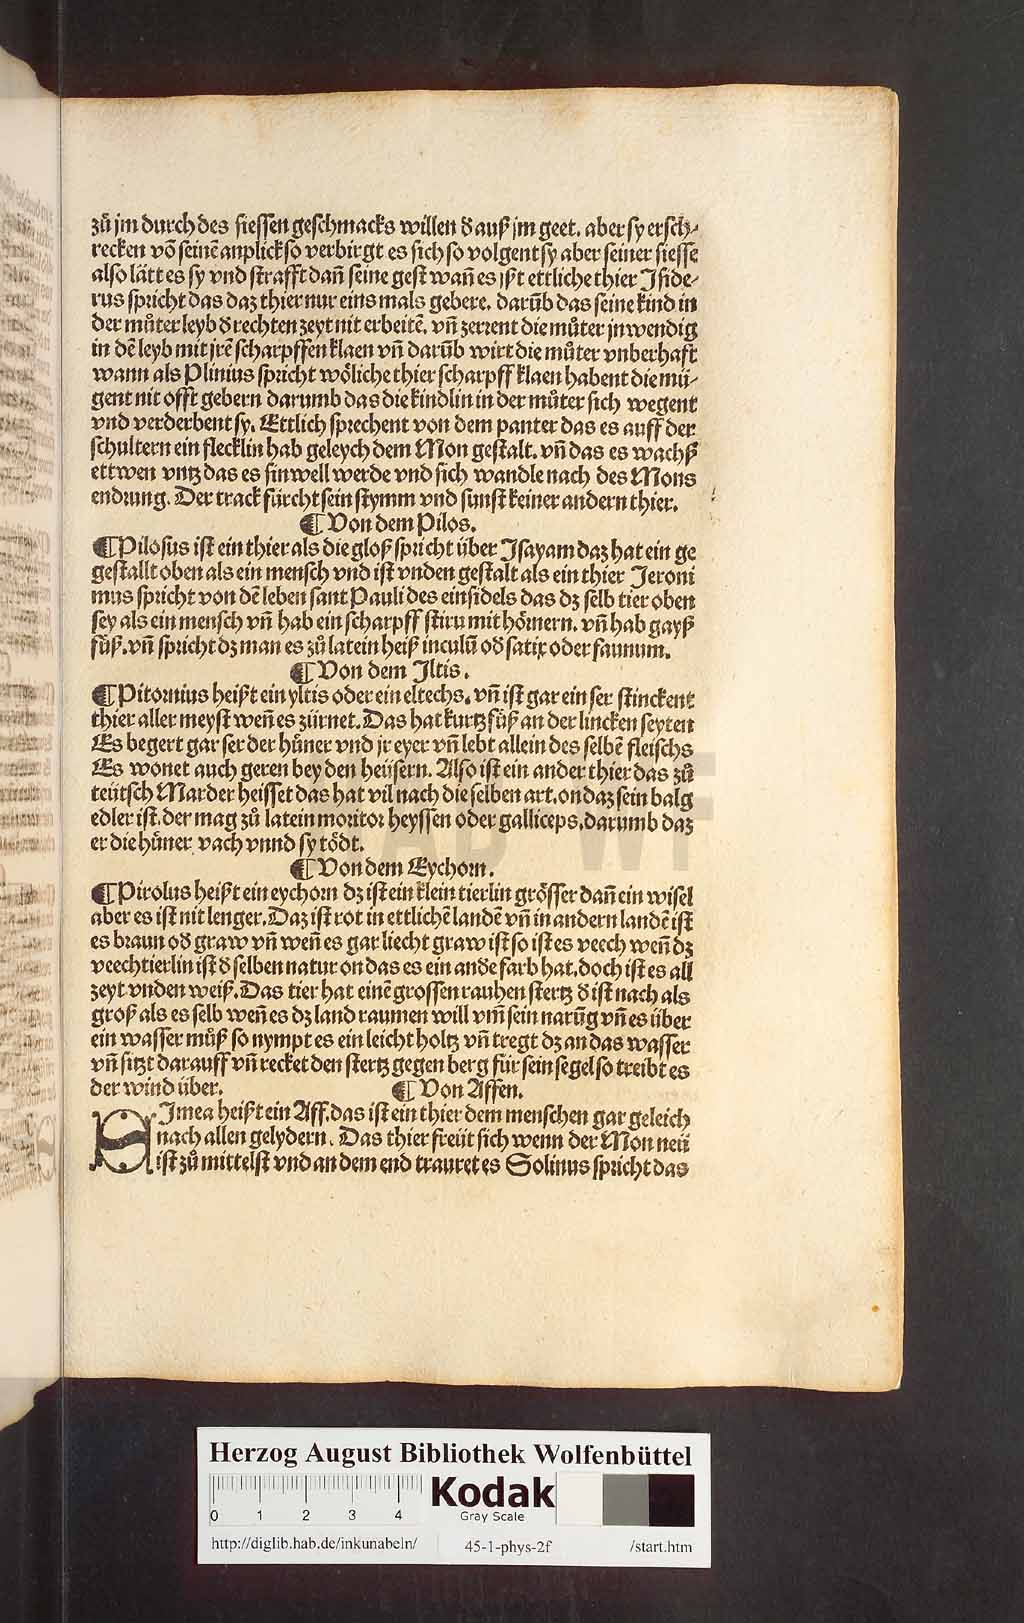 zů jm durch des siessen geschmacks willen d̕ auß jm geet. aber sy ersch⸗
recken võ seinẽ anplick so verbirgt es sich so volgent sy aber seiner siesse
also lătt es sy vnd strafft dañ seine gest wañ es ißt ettliche thier Iside⸗
rus spricht das daz thier nur eins mals gebere. darũb das seine kind in
der můter leyb d̕ rechten zeyt nit erbeitẽ. vñ zerrent die můter jnwendig
in dẽ leyb mit jrẽ scharpffen klaen vñ darũb wirt die můter vnberhafft
wann als Plinius spricht wöliche thier scharpff klaen habent die mü⸗
gent nit offt gebern darumb das die kindlin in der můter sich wegent
vnd verderbent sy. Ettlich sprechent von dem panter das es auff der
schultern ein flecklin hab geleych dem Mon gestalt. vñ das es wachß
ettwen vntz das es sinwell werde vnd sich wandle nach des Mons
endrung. Der track fürcht sein stymm vnd sunst keiner andern thier.
¶ Von dem Pilos.
¶ Pilosus ist ein thier als die gloß spricht über Isayam daz hat ein ge
gestallt oben als ein mensch vnd ist vnden gestalt als ein thier Jeroni
mus spricht von dẽ leben sant Pauli des einsidels das dz selb tier oben
sey als ein mensch vñ hab ein scharpff stirn mit hörnern. vñ hab gayß
fůß. vñ spricht dz man es zů latein heiß inculũ od̕ satix oder faunum.
¶ Von dem Iltis.
¶ Pitornius heißt ein yltis oder ein eltechs. vñ ist gar ein ser stinckent
thier aller meyst weñ es zürnet. Das hat kurtz fůß an der lincken seyten
Es begert gar ser der hůner vnd jr eyer vñ lebt allein des selbẽ fleischs
Es wonet auch geren bey den heüsern. Also ist ein ander thier das zů
teütsch Marder heisset das hat vil nach die selben art. on daz sein balg
edler ist. der mag zů latein moritor heyssen oder galliceps. darumb daz
er die hůner vach vnnd sy tödt.
¶ Von dem Eychorn.
¶ Pirolus heißt ein eychorn dz ist ein klein tierlin grösser dañ ein wisel
aber es ist nit lenger. Daz ist rot in ettlichẽ landẽ vñ in andern landẽ ist
es braun od̕ graw vñ weñ es gar liecht graw ist so ist es veech weñ dz
veechtierlin ist d̕ selben natur on das es ein and̕e farb hat. doch ist es all
zeyt vnden weiß. Das tier hat einẽ grossen rauhen stertz d̕ ist nach als
groß als es selb weñ es dz land raumen will vm̃ sein narũg vñ es über
ein wasser můß so nympt es ein leicht holtz vñ tregt dz an das wasser
vñ sitzt darauff vñ recket den stertz gegen berg für sein segel so treibt es
der wind über. ¶ Von Affen.
SImea heißt ein Aff. das ist ein thier dem menschen gar geleich
nach allen gelydern. Das thier freüt sich wenn der Mon neü
ist zů mittelst vnd an dem end trauret es Solinus spricht das
HAB WF
Herzog August Bibliothek Wolfenbüttel
0 1 2 3 4
Kodak
Gray Scale
http://diglib.hab.de/inkunabeln/ 45-1-phys-2f /start.htm